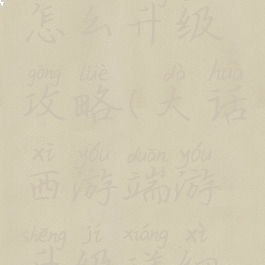 怎么升级
gōng lüè dà huà
攻略(大话
xī yóu duān yóu
西游端游
shēng jí xiáng xì
升级详细